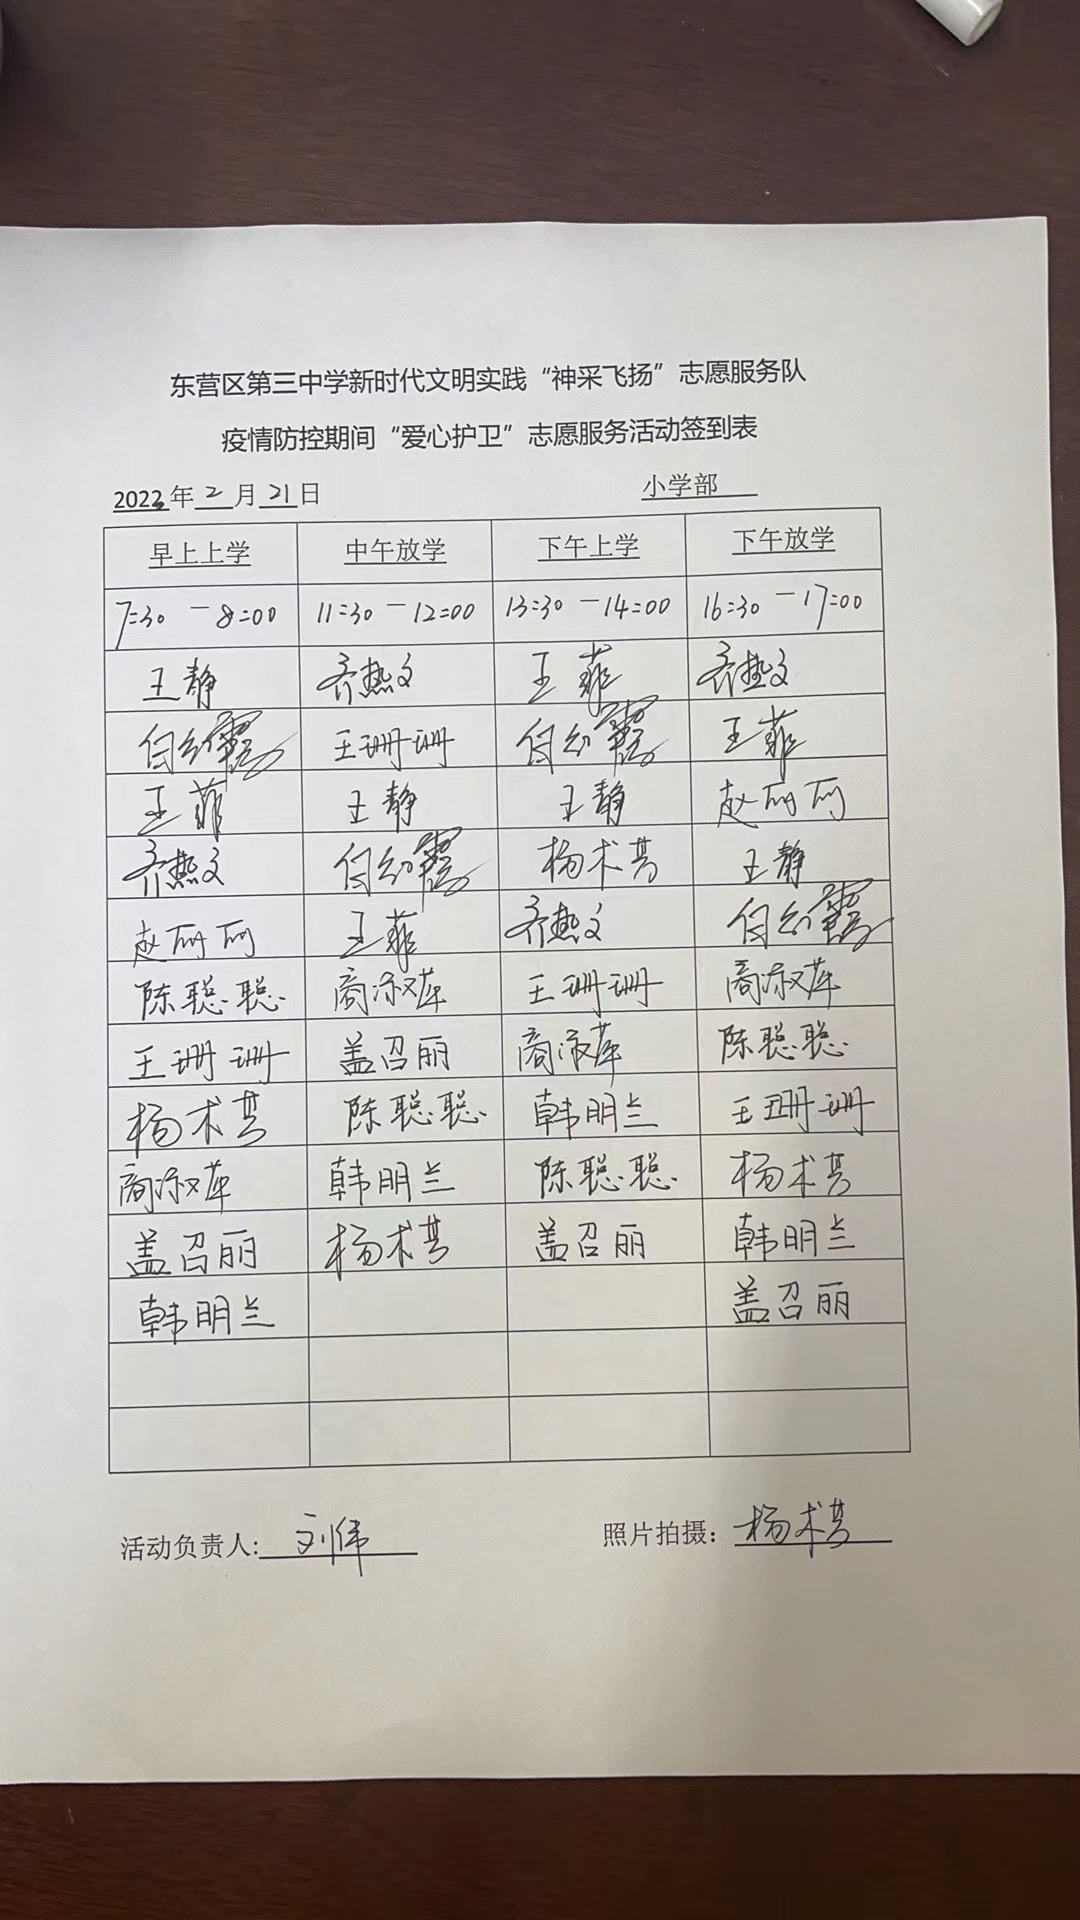 东营区第三中学新时代文明实践“神采飞扬”志愿服务队
疫情防控期间“爱心护卫”志愿服务活动签到表
2022年2月21日 小学部
早上上学 中午放学 下午上学 下午放学
7:30-8:00 11:30-12:00 13:30-14:00 16:30-17:00
王静 齐热文 王菲 齐热文
王珊珊 王菲
王菲 王静 王静 赵丽丽
齐热文 杨术芸 王静
赵丽丽 王菲 齐热文
陈聪聪 商淑萍 王珊珊 商淑萍
王珊珊 盖召丽 商淑萍 陈聪聪
杨术芸 陈聪聪 韩明兰 王珊珊
商淑萍 韩明兰 陈聪聪 杨术芸
盖召丽 杨术芸 盖召丽 韩明兰
韩明兰 盖召丽
活动负责人:刘伟 照片拍摄:杨术芸